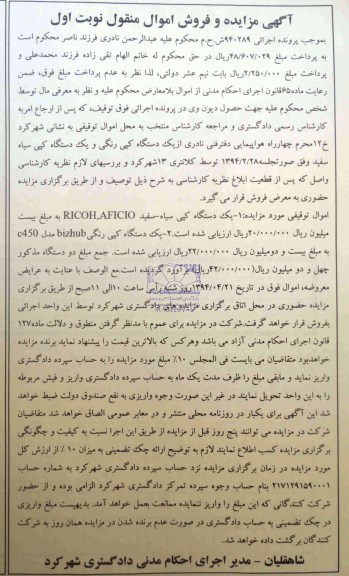 آگهی مزایده و فروش اموال منقول نوبت اول
بموجب پرونده اجرائی ۹۴۰۲۸۹ش.ح.م محکوم علیه عبدالرحمن نادری فرزند ناصر محکوم است
به پرداخت مبلغ ۴۸/۶۰۷/۰۲۹ریال در حق محکوم له خانم الهام تقی زاده فرزند محمدعلی و
پرداخت مبلغ ۲/۲۵۰/۰۰۰ریال بابت نیم عشر دولتی، لذا نظر به عدم پرداخت مبلغ فوق، ضمن
رعایت ماده۶۵قانون اجرای احکام مدنی از اموال بلامعارض محکوم علیه و نظر به معرفی مال توسط
شخص محکوم علیه جهت حصول دیون وی در پرونده اجرائی فوق توقیف، که پس از ارجاع امربه
کارشناس رسمی دادگستری و مراجعه کارشناس منتخب به محل اموال توقیفی به نشانی شهرکرد
خ۱۲محرم چهارراه هواپیمایی دفترفنی نادری ازیک دستگاه کپی رنگی و یک دستگاه کپی سیاه
سفید وفق صورتجلسه۱۳۹۴/۲/۲۸ توسط کلانتری ۱۳شهرکرد و بررسیهای لازم نظریه کارشناسی
واصل که پس از قطعیت ابلاغ نظریه کارشناسی به شرح ذیل توصیف و از طریق برگزاری مزایده
حضوری به معرض فروش قرار می گیرد.
اموال توقیفی مورد مزایده:۱-یک دستگاه کپی سیاه-سفید RICOH,AFICIO به مبلغ بیست
میلیون ریال ۲۰/۰۰۰/۰۰۰ریال ارزیابی شده است.۲-یک دستگاه کپی رنگیbizhub مدل c450
به مبلغ بیست و دومیلیون ریال۲۲/۰۰۰/۰۰۰ریال ارزیابی شده است. جمع مبلغ دو دستگاه مذکور
چهل و دو میلیون ریال(۴۲/۰۰۰/۰۰۰ریال)برآورد گردیده است.مع الوصف با عنایت به عرایض
معروضه، اموال فوق در تاریخ ۱۳۹۴/۰۴/۲۱روز شنبه راس ساعت ۱۰الی ۱۱صبح از طریق برگزاری
مزایده حضوری در محل اتاق برگزاری مزایده های دادگستری شهرکرد توسط این واحد اجرائی
بفروش قرار خواهد گرفت.شرکت در مزایده برای عموم با مدنظر گرفتن منطوق و دلالت ماده۱۲۷
قانون اجرای احکام مدنی آزاد می باشد وهرکس که بالاترین قیمت را پیشنهاد نماید برنده مزایده
خواهدبود متقاضیان می بایست فی المجلس ۱۰٪ مبلغ مورد مزایده را به حساب سپرده دادگستری
واریز نماید و مابقی مبلغ را ظرف مدت یک ماه به حساب سپرده دادگستری واریز و فیش مربوطه
را به این واحد تحویل نمایند در غیر این صورت وجوه واریزی به نفع صندوق دولت ضبط خواهد
شد این آگهی برای یکبار در روزنامه محلی منتشر و در معابر عمومی الصاق خواهد شد متقاضیان
شرکت در مزایده می توانند پنج روز قبل از مزایده از طریق این اجرا نسبت به کیفیت و چگونگی
برگزاری مزایده کسب اطلاع نمایند لازم به توضیح ارائه چک تضمینی به میزان ۱۰ ٪ از ارزش کل
مورد مزایده در زمان برگزاری مزایده نزد حساب سپرده دادگستری شهرکرد به شماره حساب
۲۱۷۱۲۹۱۵۹۰۰۰۱ بنام حساب وجوه سپرده تمرکز دادگستری شهرکرد الزامی بوده و از حضور
شرکت کنندگانی که این مبلغ را واریز ننمایده ممانعت بعمل خواهد آمد. بدیهیست مبلغ واریزی
در چک تضمینی به حساب دادگستری در صورت عدم برنده شدن در مزایده همان روز به شرکت
کنندگان برگشت داده خواهد شد.
شاهقلیان - مدیر اجرای احکام مدنی دادگستری شهرکرد